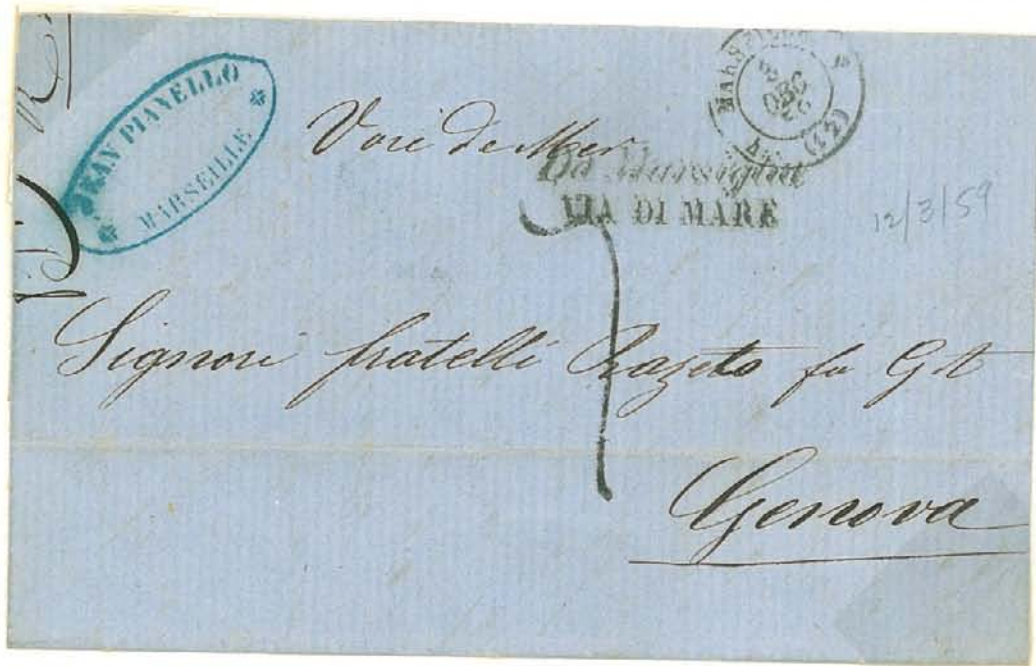 JEAN PIANELLO
MARSEILLE
Voie de Mer
MARSEILLE
DEC
(12)
Da Marsiglia
VIA DI MARE
12/3/59
Signori fratelli Razeto fu G
Genova